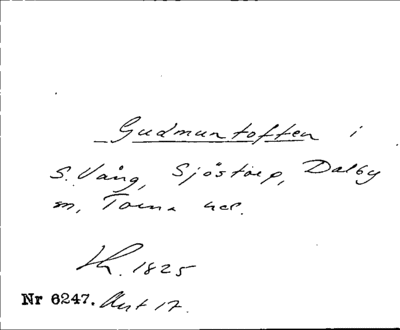 Gudmuntoften i
S. Vång, Sjöstorp, Dalby
m, Torna hd.
1825
Nr 6247. Akt 17.